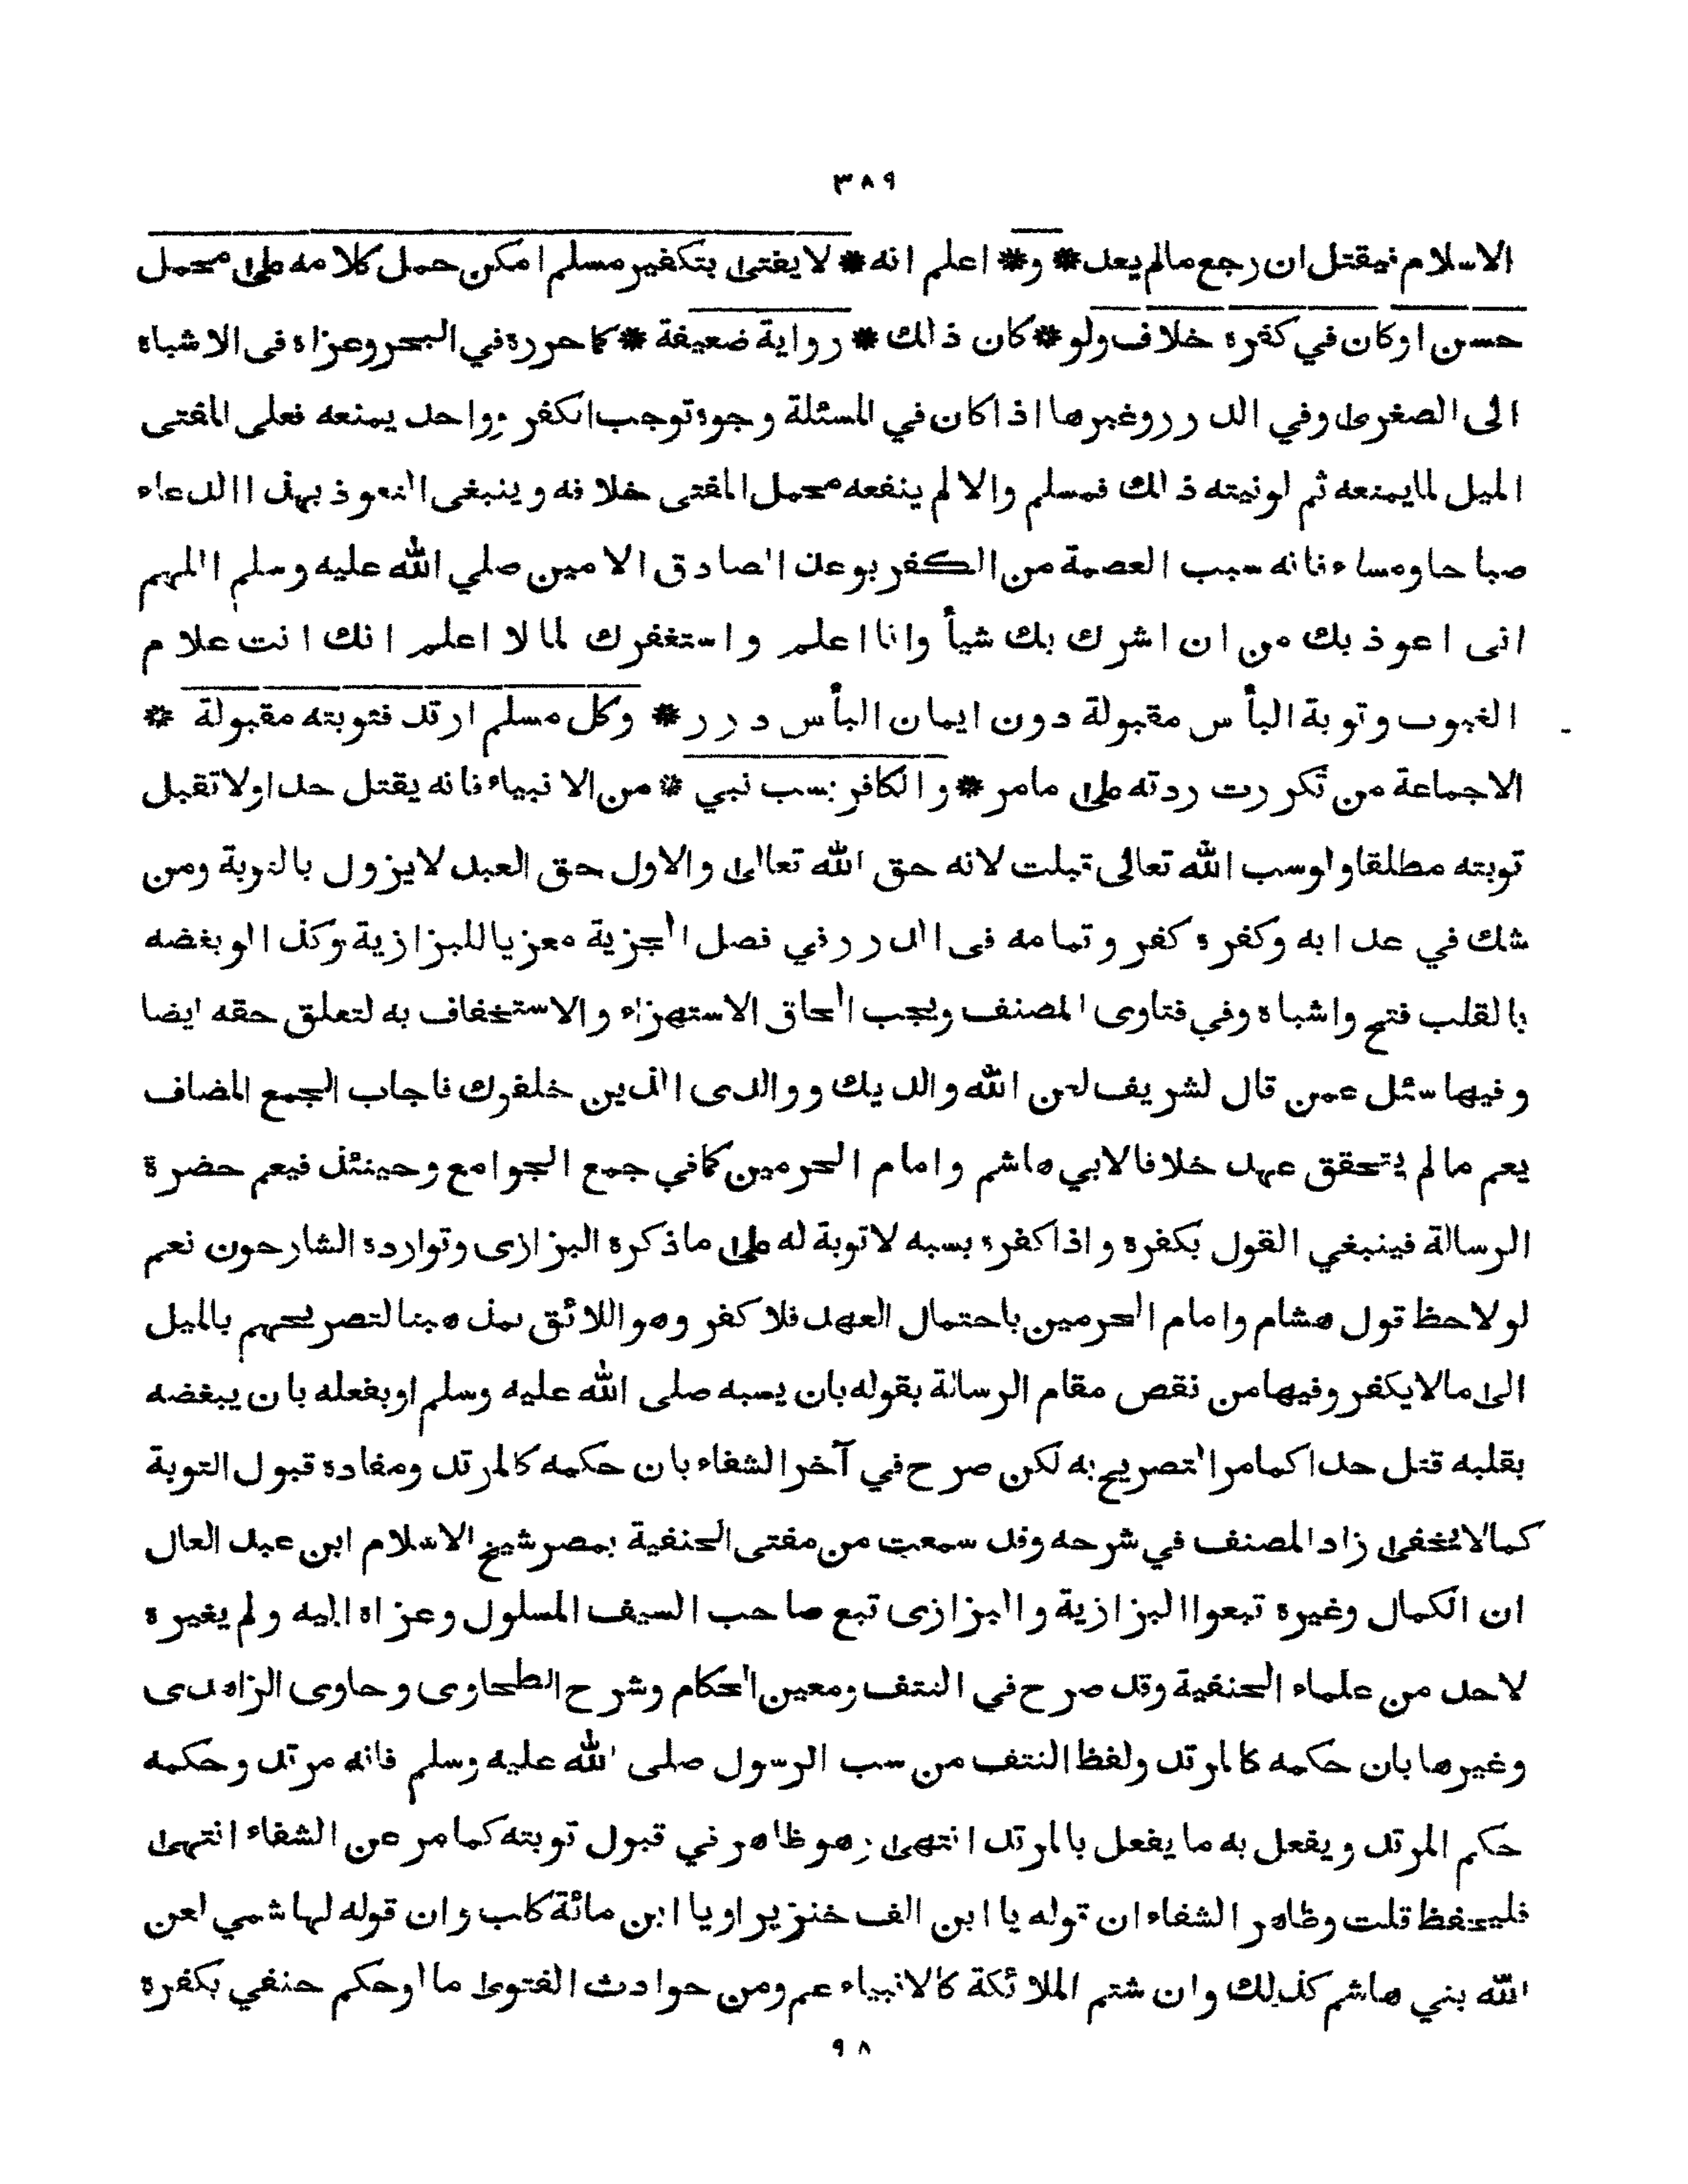 ٣٨٩
الاسلام فيقتل ان رجع مالم يعد * و * اعلم انه * لا يفتى بتكفير مسلم امكن حمل كلامه على محمل
حسن اوكان في كفره خلاف ولو * كان ذلك * رواية ضعيفة * كما حرره في البحر وعزاه فى الاشباه
الى الصغرى وفي الدرر وغيرها اذا كان في المسئلة وجوه توجب الكفر وواحد يمنعه فعلى المفتى
الميل لما يمنعه ثم لو نيته ذلك فمسلم والا لم ينفعه محمل المفتى خلافه وينبغى التعوذ بهذا الدعاء
صباحا ومساء فانه سبب العصمة من الكفر بوعد الصادق الامين صلي الله عليه وسلم اللهم
انى اعوذ بك من ان اشرك بك شيأ وانا اعلم واستغفرك لما لا اعلم انك انت علام
الغيوب وتوبة البأس مقبولة دون ايمان البأس درر * وكل مسلم ارتد فتوبته مقبولة *
الاجماعة من تكررت ردته على مامر * والكافر بسب نبي * من الانبياء فانه يقتل حدا ولا تقبل
توبته مطلقا ولو سب الله تعالى قبلت لانه حق الله تعالى والاول حق العبد لا يزول بالتوبة ومن
شك في عذابه وكفره كفر وتمامه فى الدرر في فصل الجزية معزيا للبزازية وكذا لو بغضه
بالقلب فتح واشباه وفي فتاوى المصنف ويجب الحاق الاستهزاء والاستخفاف به لتعلق حقه ايضا
وفيها سئل عمن قال لشريف لعن الله والديك ووالدى الذين خلفوك فاجاب الجمع المضاف
يعم مالم يتحقق عهد خلافا لابي هاشم وامام الحرمين كما في جمع الجوامع وحينئذ فيعم حضرة
الرسالة فينبغي القول بكفره واذا كفره بسبه لا توبة له على ماذكره البزازى وتوارده الشارحون نعم
لو لاحظ قول هشام وامام الحرمين باحتمال العهد فلا كفر وهو اللائق بمذهبنا لتصريحهم بالميل
الى مالا يكفر وفيها من نقص مقام الرسالة بقوله بان يسبه صلى الله عليه وسلم او بفعله بان يبغضه
بقلبه قتل حدا كما مر التصريح به لكن صرح في آخر الشفاء بان حكمه كالمرتد ومفاده قبول التوبة
كما لا يخفى زاد المصنف في شرحه وقد سمعت من مفتى الحنفية بمصر شيخ الاسلام ابن عبد العال
ان الكمال وغيره تبعوا البزازية والبزازى تبع صاحب السيف المسلول وعزاه اليه ولم يغيره
لاحد من علماء الحنفية وقد صرح في النتف ومعين الحكام وشرح الطحاوى وحاوى الزاهدى
وغيرها بان حكمه كالمرتد ولفظ النتف من سب الرسول صلى الله عليه وسلم فانه مرتد وحكمه
حكم المرتد ويفعل به ما يفعل بالمرتد انتهى وهو ظاهر في قبول توبته كما مر عن الشفاء انتهى
فليحفظ قلت وظاهر الشفاء ان قوله يا ابن الف خنزير او يا ابن مائة كلب وان قوله لهاشمي لعن
الله بني هاشم كذلك وان شتم الملائكة كالانبياء عم ومن حوادث الفتوى ما لو حكم حنفي بكفره
٩٨